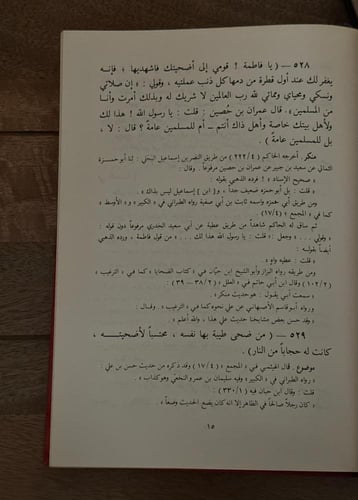 ٥٢٨ – ( يا فاطمة ! قومي إلى أضحيتك فاشهديها ، فإنه
يغفر لك عند أول قطرة من دمها كل ذنب عملتيه ، وقولي : « إن صلاتي
ونسكي ومحياي ومماتي لله رب العالمين لا شريك له وبذلك أمرت وأنا
من المسلمين » . قال عمران بن حُصين : قلت : يا رسول الله ! هذا لك
ولأهل بيتك خاصة وأهل ذاك أنتم – أم للمسلمين عامة ؟ قال : لا ،
بل للمسلمين عامة ) .
منكر . أخرجه الحاكم ( ٤/ ٢٢٢ ) من طريق النضر بن إسماعيل البجلي : ثنا أبو حمزة
الثمالي عن سعيد بن جبير عن عمران بن حصين مرفوعاً . وقال :
« صحيح الإسناد » ! فرده الذهبي بقوله :
« قلت : بل أبو حمزة ضعيف جداً ، و( ابن ) إسماعيل ليس بذاك » .
ومن طريق أبي حمزة واسمه ثابت بن أبي صفية رواه الطبراني في « الكبير » و « الأوسط »
كما في « المجمع » ( ٤/ ١٧ ) .
ثم ساق له الحاكم شاهداً من طريق عطية عن أبي سعيد الخدري مرفوعاً دون قوله :
« وقولي ... » وجعل : « قلت : يا رسول الله هذا لك ... » من قول فاطمة ، ورده الذهبي
أيضاً بقوله :
« قلت : عطية واهٍ » .
ومن طريقه رواه البزار وأبو الشيخ ابن حبان في « كتاب الضحايا » كما في « الترغيب »
( ٢/ ١٠٢ ) وقال ابن أبي حاتم في « العلل » ( ٢/ ٣٨ – ٣٩ ) :
« سمعت أبي يقول : هو حديث منكر » .
ورواه أبو قاسم الأصبهاني عن علي نحوه كما في « الترغيب » . وقال :
« وقد حسن بعض مشايخنا حديث علي هذا ، والله أعلم » .
٥٢٩ – ( من ضحى طيبة بها نفسه ، محتسباً لأضحيته ،
كانت له حجاباً من النار ) .
موضوع . قال الهيثمي في « المجمع » ( ٤/ ١٧ ) وقد ذكره من حديث حسن بن علي :
« رواه الطبراني في « الكبير » وفيه سليمان بن عمرو النخعي وهو كذاب » .
قلت : وقال ابن حبان فيه ( ١/ ٣٣٠ ) :
« كان رجلاً صالحاً في الظاهر إلا أنه كان يضع الحديث وضعاً » .
١٥